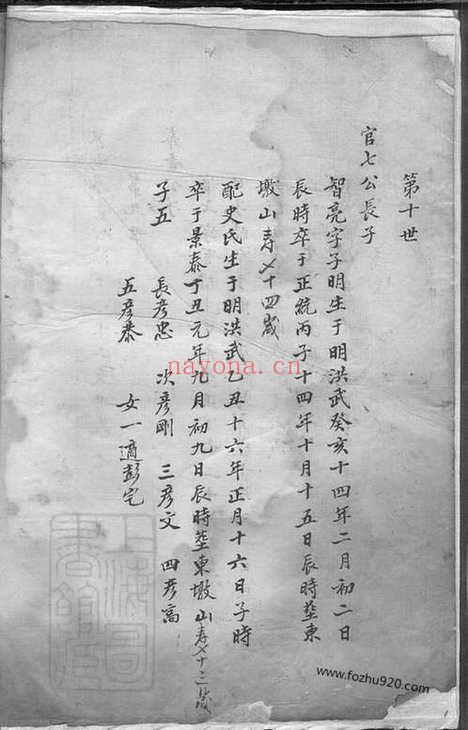 第十世
官七公長子
智亮字子明生于明洪武癸亥十四年二月初二日
辰時卒于正統丙子十四年十月十五日辰時塟東
墩山壽七十四歲
配史氏生于明洪武乙丑十六年正月十六日子時
卒于景泰丁丑元年九月初九日辰時塟東墩山壽七十三歲
子五 長彦忠 次彦剛 三彦文 四彦高
五彦泰 女一適彭宅
nayona.cn
www.fozhu920.com